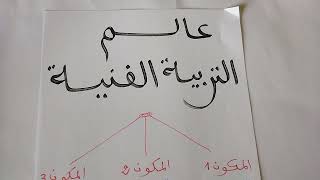 عالم
التربية الفنية
المكون 1 المكون 2 المكون 3